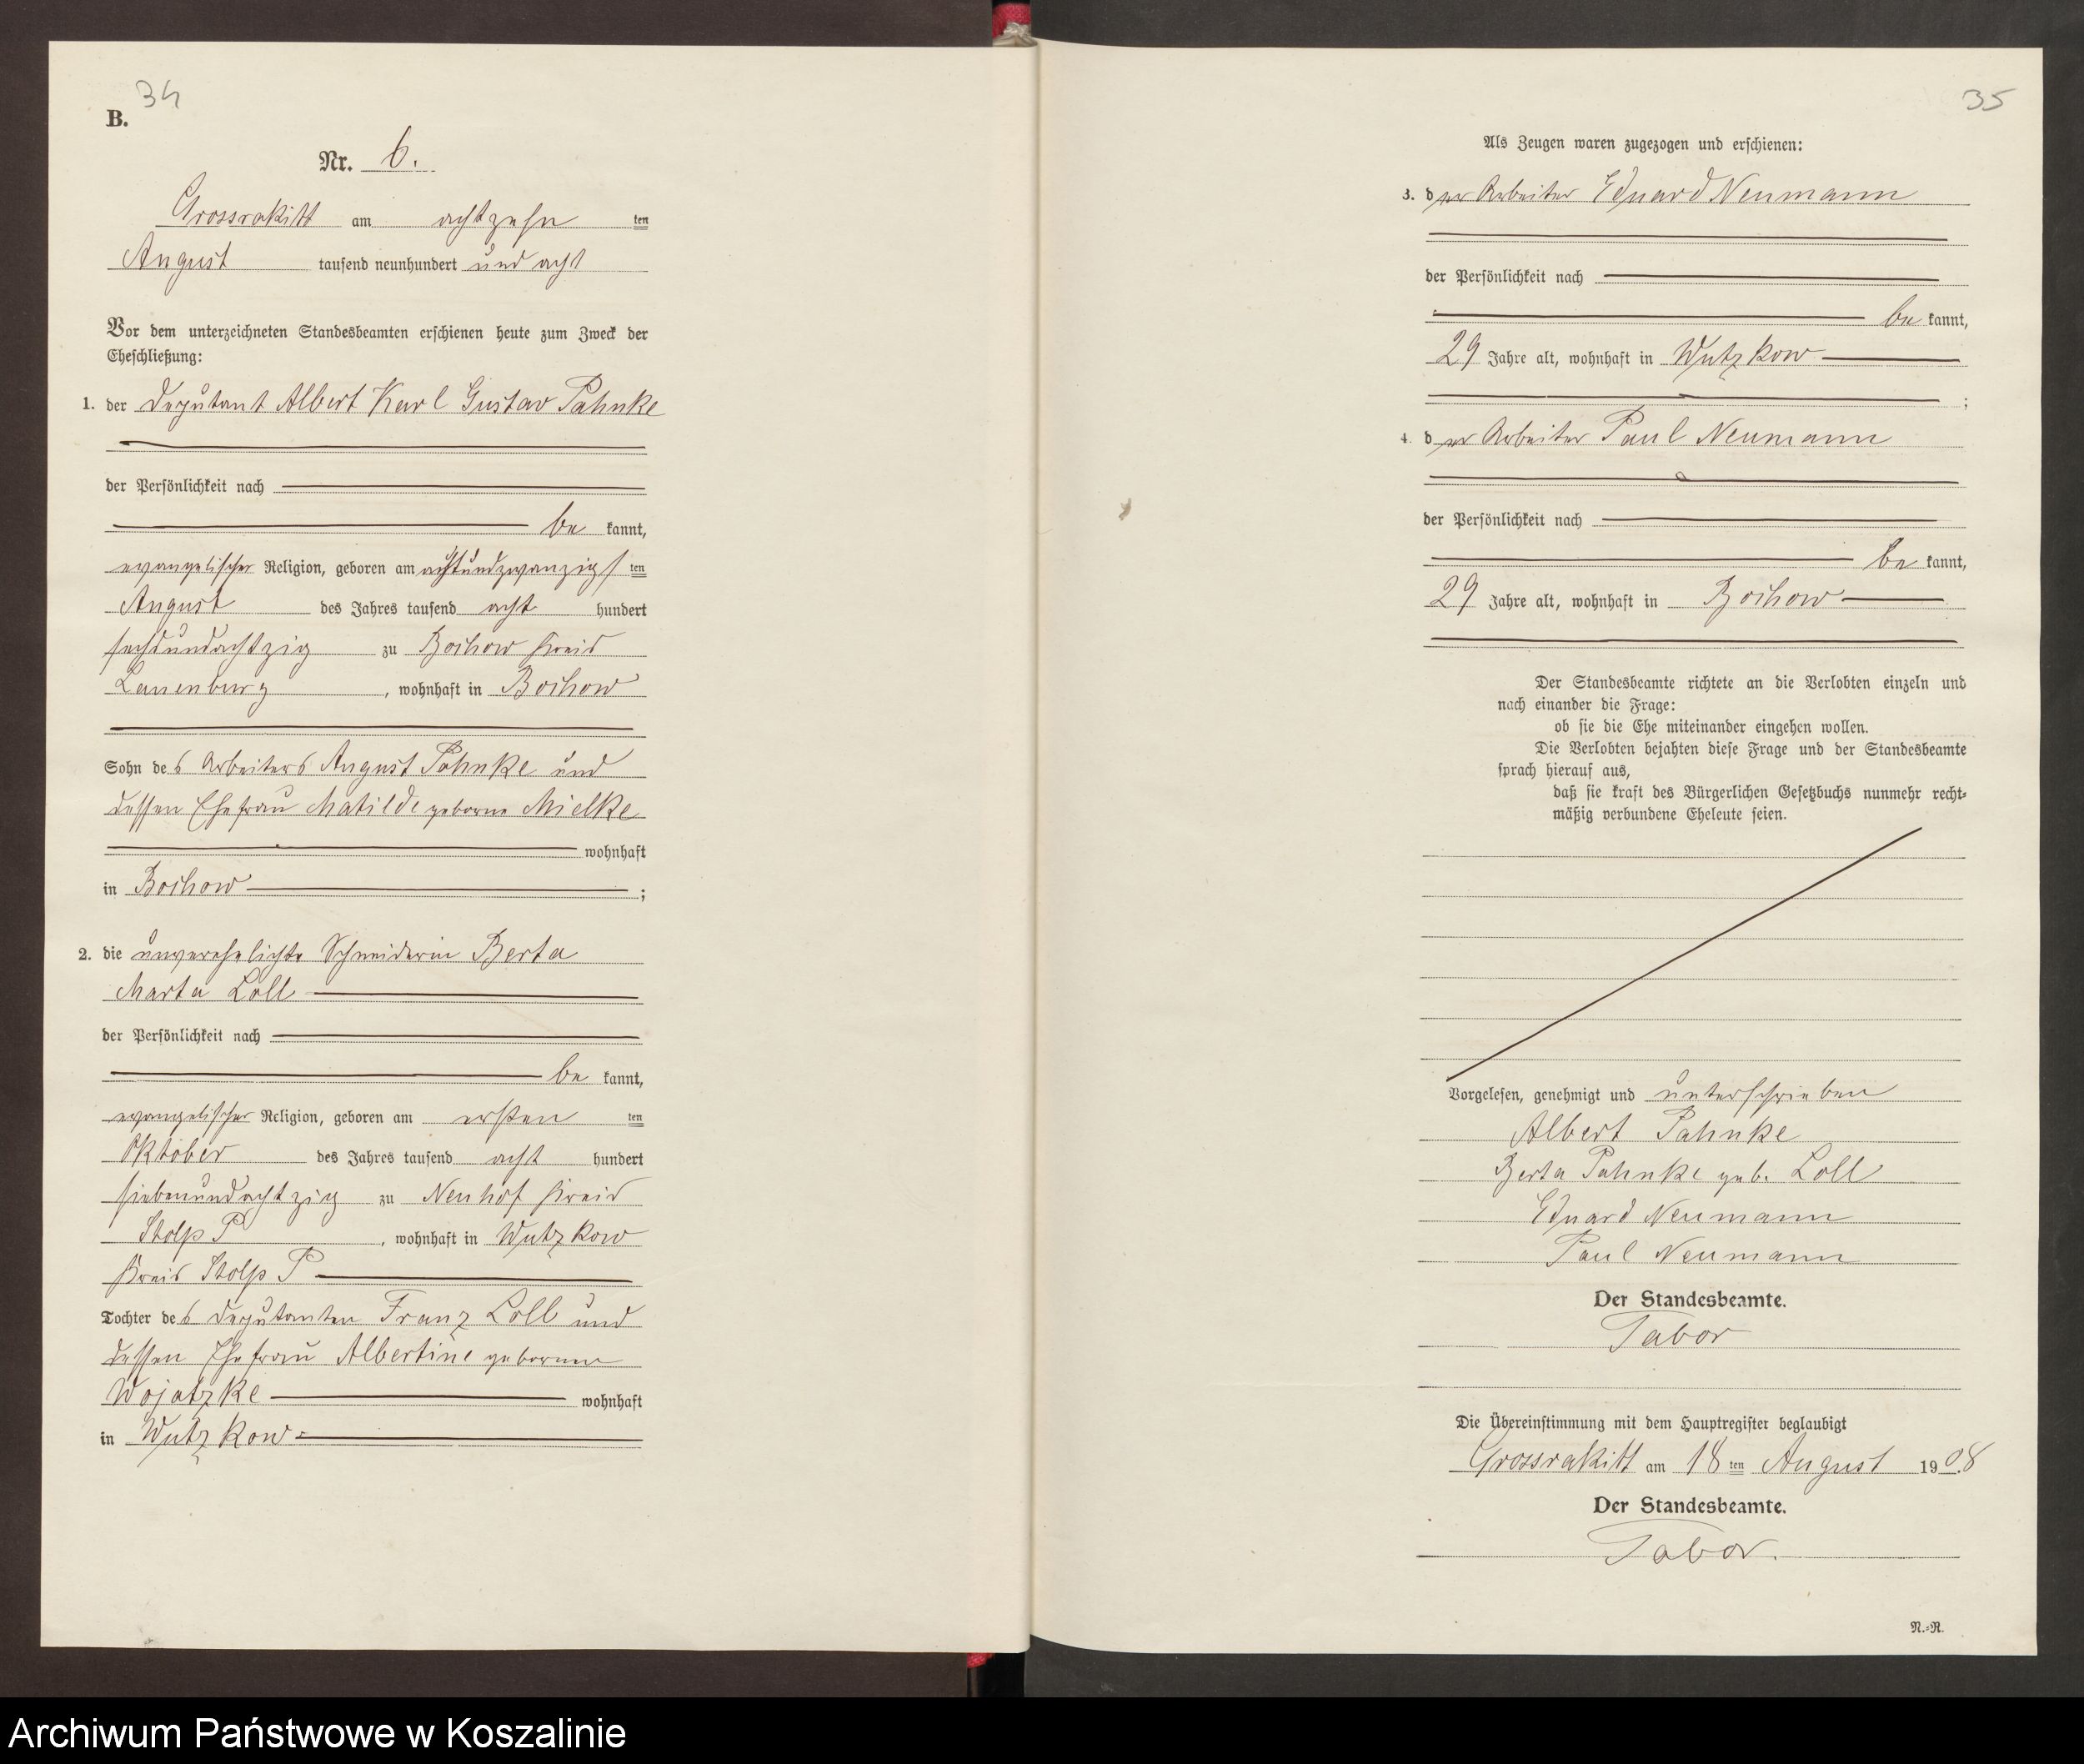 34
B.
Nr. 6.
Grossrakitt am achtzehn ten
August tausend neunhundert und acht
Vor dem unterzeichneten Standesbeamten erschienen heute zum Zweck der
Eheschließung:
1. der Deputant Albert Karl Gustav Pahnke
der Persönlichkeit nach
be kannt,
evangelischer Religion, geboren am achtundzwanzigs ten
August des Jahres tausend acht hundert
sechsundachtzig zu Bochow Kreis
Lauenburg, wohnhaft in Bochow
Sohn des Arbeiters August Pahnke und
dessen Ehefrau Matilde geborne Mielke
wohnhaft
in Bochow ;
2. die unverehelichte Schneiderin Berta
Marta Loll
der Persönlichkeit nach
be kannt,
evangelischer Religion, geboren am ersten ten
Oktober des Jahres tausend acht hundert
siebenundachtzig zu Neuhof Kreis
Stolp P, wohnhaft in Wutzkow
Kreis Stolp P
Tochter des Deputanten Franz Loll und
dessen Ehefrau Albertine geborene
Wojatzke wohnhaft
in Wutzkow
35
Als Zeugen waren zugezogen und erschienen:
3. der Arbeiter Eduard Neumann
der Persönlichkeit nach
be kannt,
29 Jahre alt, wohnhaft in Wutzkow
;
4. der Arbeiter Paul Neumann
der Persönlichkeit nach
be kannt,
29 Jahre alt, wohnhaft in Bochow
Der Standesbeamte richtete an die Verlobten einzeln und
nach einander die Frage:
ob sie die Ehe miteinander eingehen wollen.
Die Verlobten bejahten diese Frage und der Standesbeamte
sprach hierauf aus,
daß sie kraft des Bürgerlichen Gesetzbuchs nunmehr recht-
mäßig verbundene Eheleute seien.
Vorgelesen, genehmigt und unterschrieben
Albert Pahnke
Berta Pahnke geb. Loll
Eduard Neumann
Paul Neumann
Der Standesbeamte.
Tabor
Die Übereinstimmung mit dem Hauptregister beglaubigt
Grossrakitt am 18 ten August 1908
Der Standesbeamte.
Tabor.
N.-R.
Archiwum Państwowe w Koszalinie